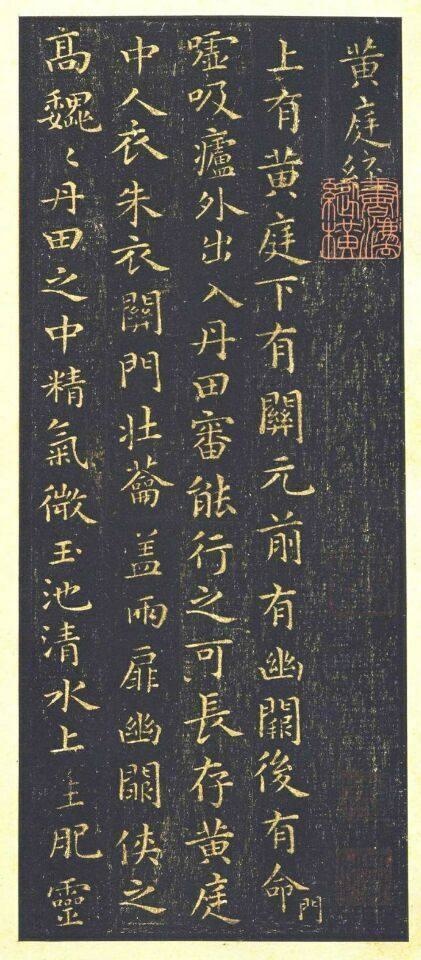 黄庭经
上有黄庭下有關元前有幽闕後有命門
嘘吸廬外出入丹田審能行之可長存黄庭
中人衣朱衣關門壮蘥盖兩扉幽闕俠之
高巍〻丹田之中精氣微玉池清水上生肥靈